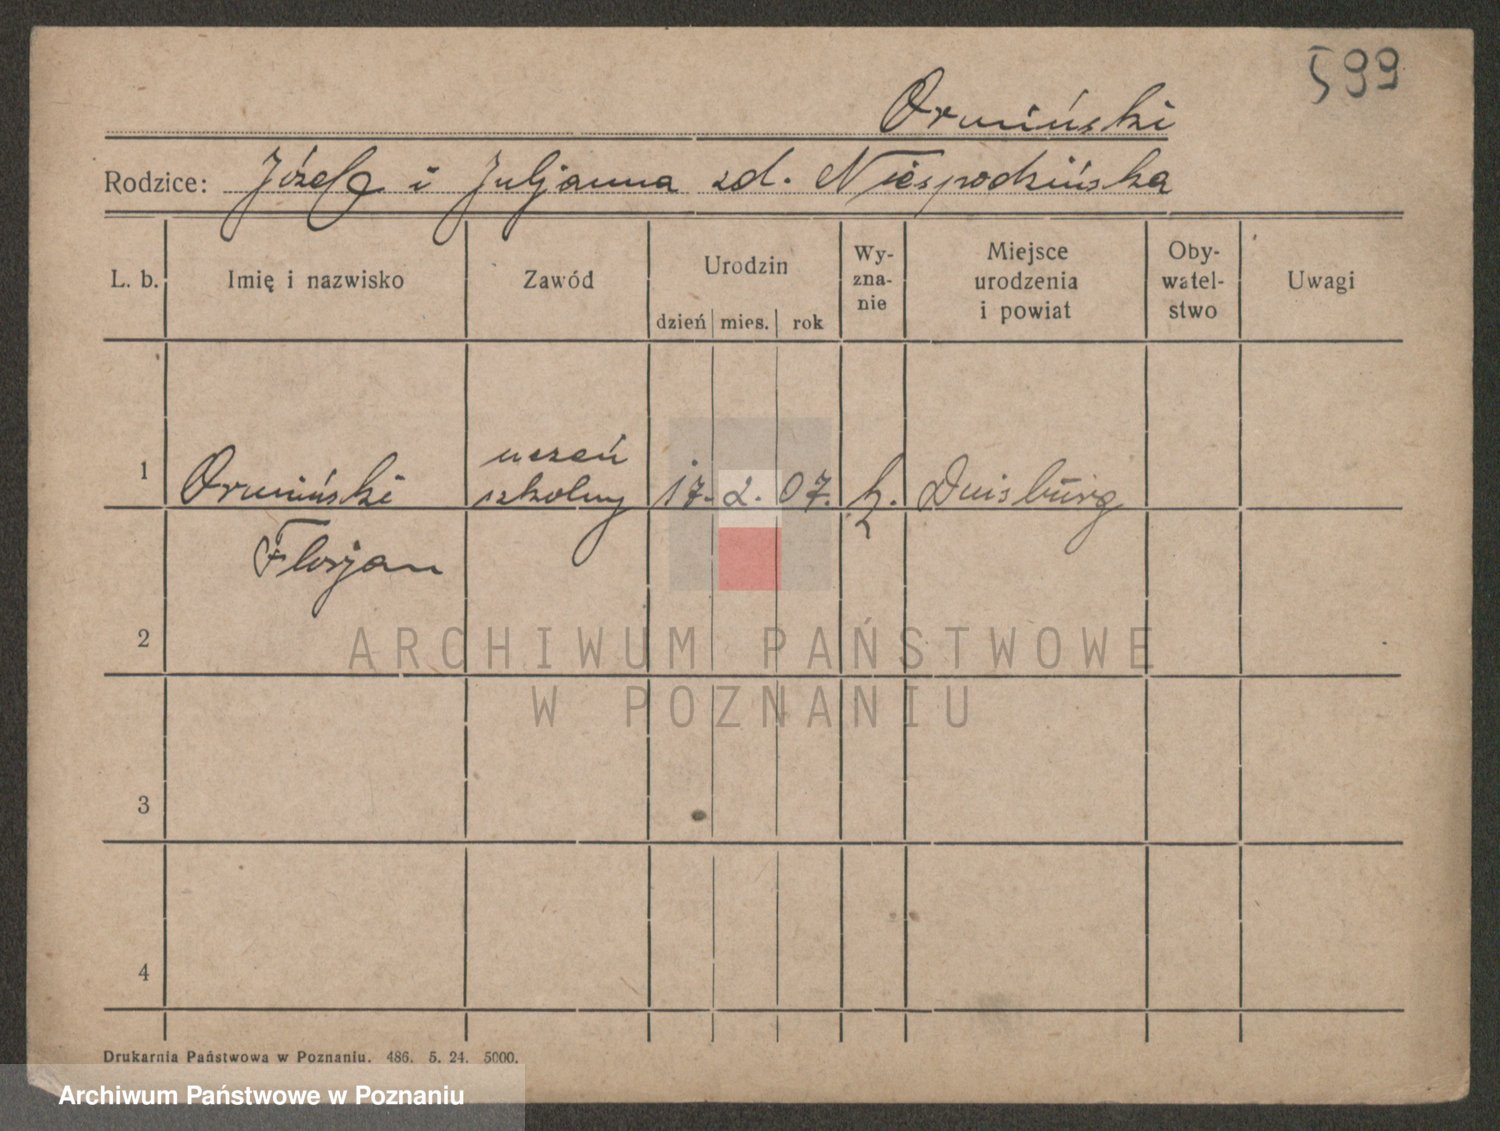 599
Ormiński
Rodzice: Józef i Juljanna zd. Niespodzińska
L. b. Imię i nazwisko Zawód Urodzin dzień mies. rok Wy-zna-nie Miejsce urodzenia i powiat Oby-watel-stwo Uwagi
1 Ormiński uczeń szkolny 17. 2. 07. k. Duisburg
Florjan
2
ARCHIWUM PAŃSTWOWE
W POZNANIU
3
4
Drukarnia Państwowa w Poznaniu. 486. 5. 24. 5000.
Archiwum Państwowe w Poznaniu